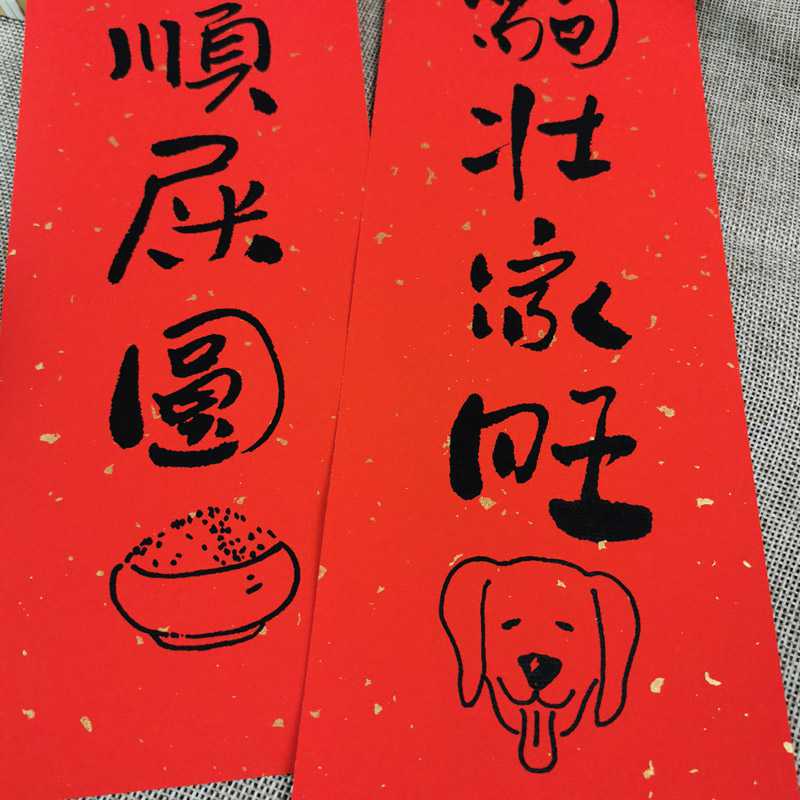 壯家旺
順屎圓